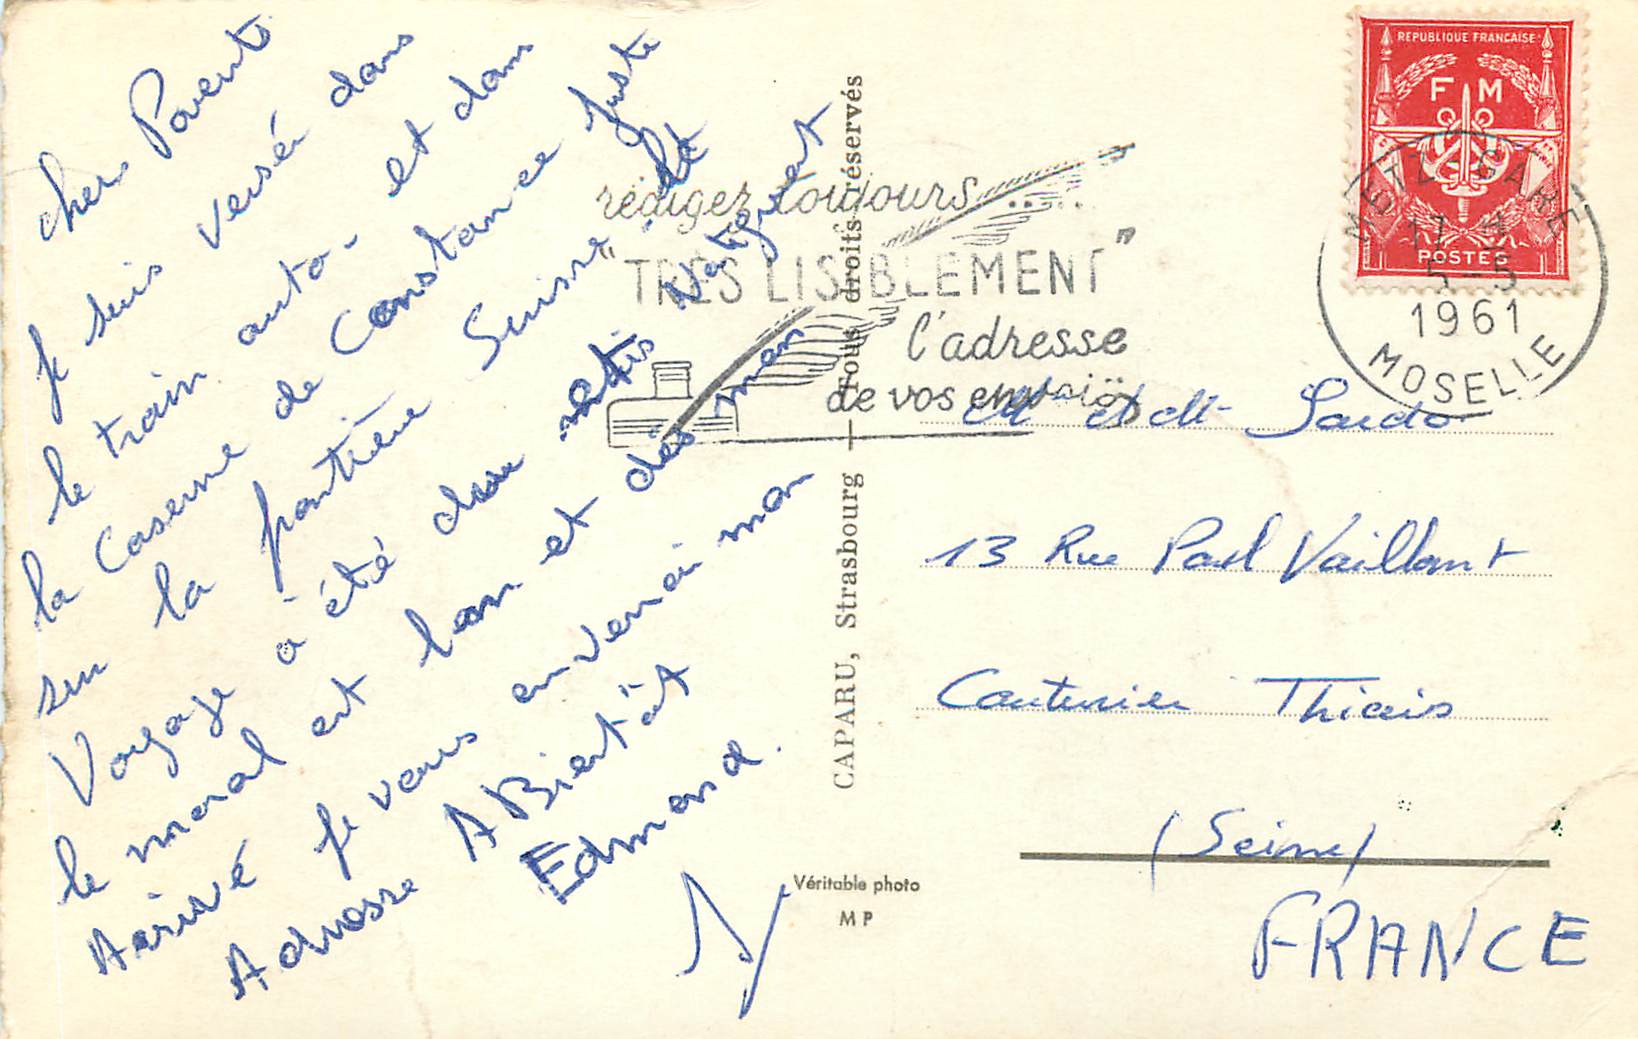 chers Parents
Je suis versé dans
le train auto- et dans
la Caserne de Constance juste
sur la frontière Suisse le
Voyage a été dur mais
le moral est bon et dès mon
Arrivé je vous enverrai mon
Adresse A Bientôt
Edmond.
CAPARU, Strasbourg — Tous droits réservés
Véritable photo
M P
rédigez toujours.....
"TRÈS LISIBLEMENT"
l'adresse
de vos envois
REPUBLIQUE FRANÇAISE
F M
POSTES
METZ-GARE
17 H
5-5
1961
MOSELLE
M et Mme Sardo
13 Rue Paul Vaillant
Couturier Thiais
(Seine)
FRANCE